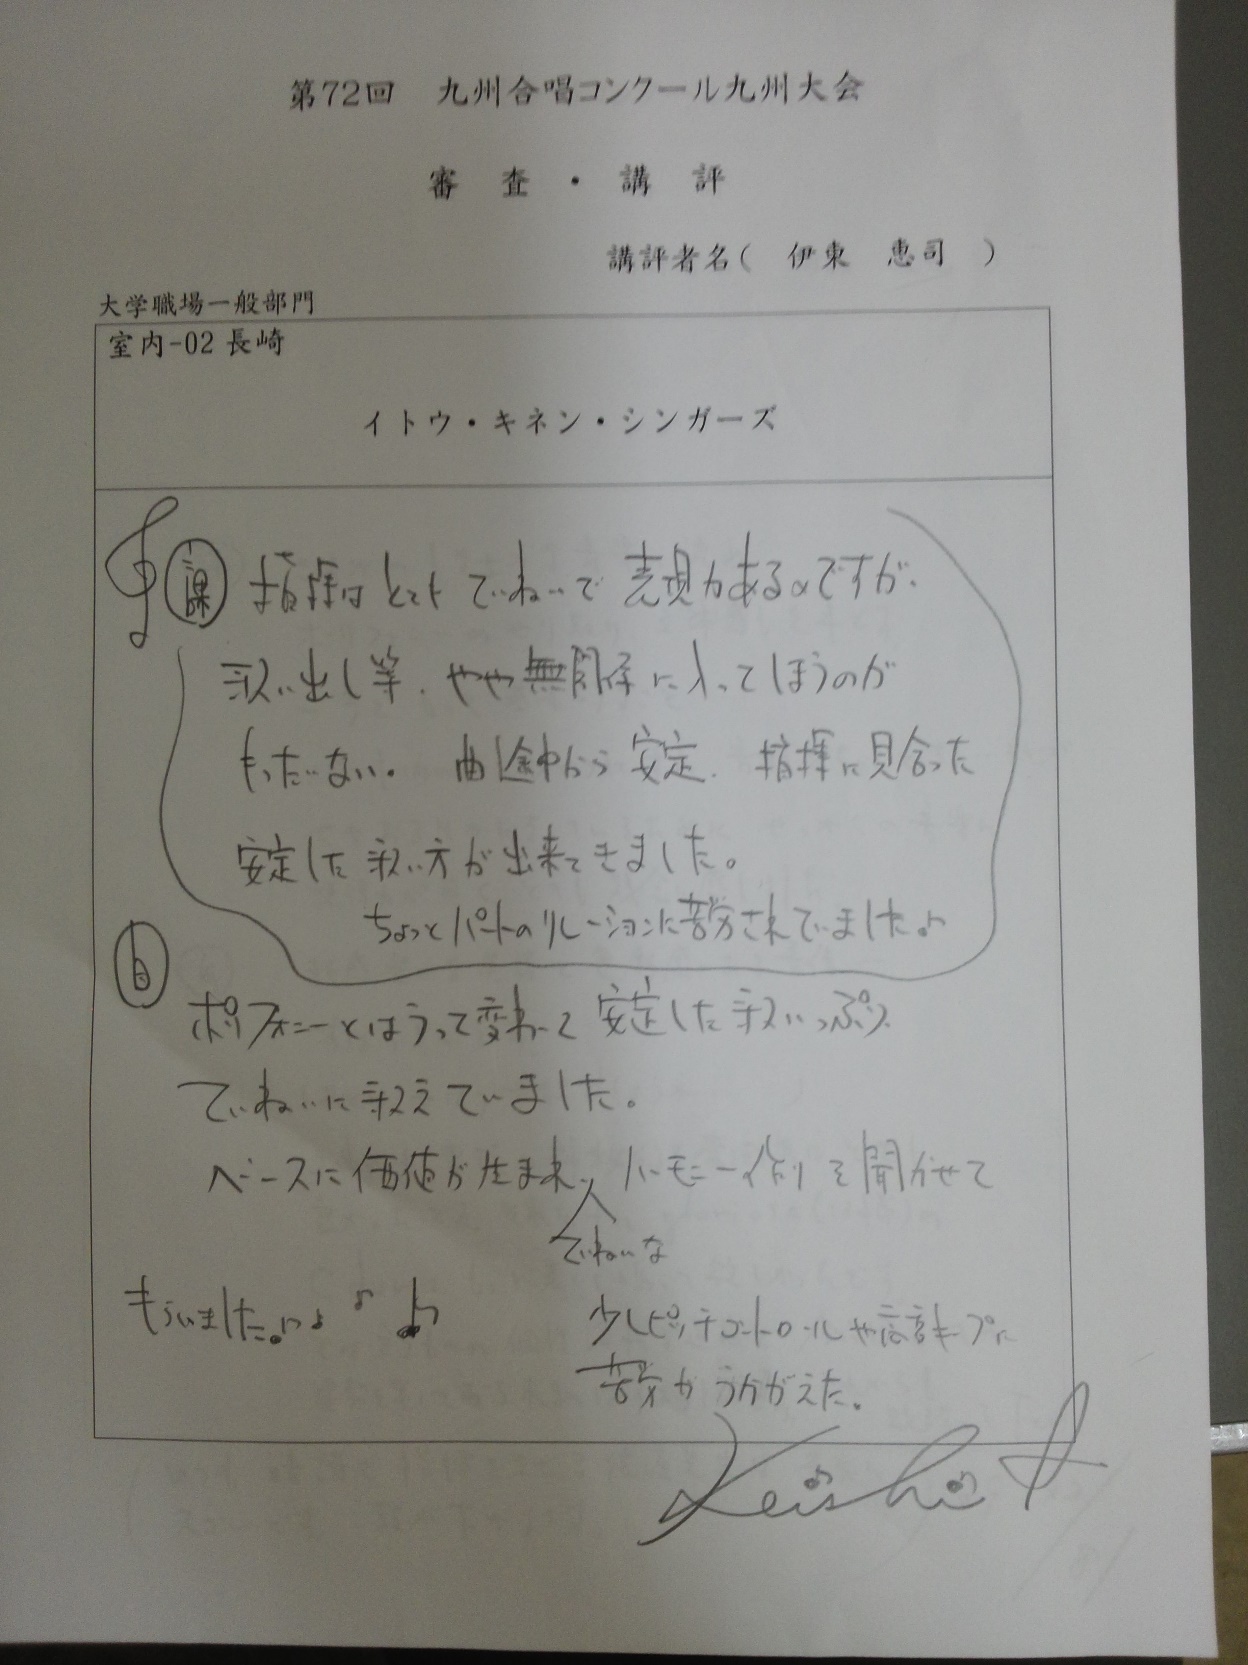 第72回 九州合唱コンクール九州大会
審 査 ・ 講 評
講評者名( 伊東 恵司 )
大学職場一般部門
室内-02 長崎
イトウ・キネン・シンガーズ
課 指揮は とても ていねいで 表現力あるのですが、
歌い出し等、やや無関係に入ってしまうのが
もったいない。 曲途中から 安定、 指揮に見合った
安定した 歌い方が 出来てきました。
ちょっと パートの リレーションに 苦労されていました♪
自
ポリフォニーとはうって変わって 安定した 歌いっぷり
ていねいに 歌えていました。
ベースに 価値が生まれ、 ハーモニー作りを 聞かせて
ていねいな
もらいました。♪♪
少しピッチコントロールや高音キープに
苦労が うかがえた。
Keishi